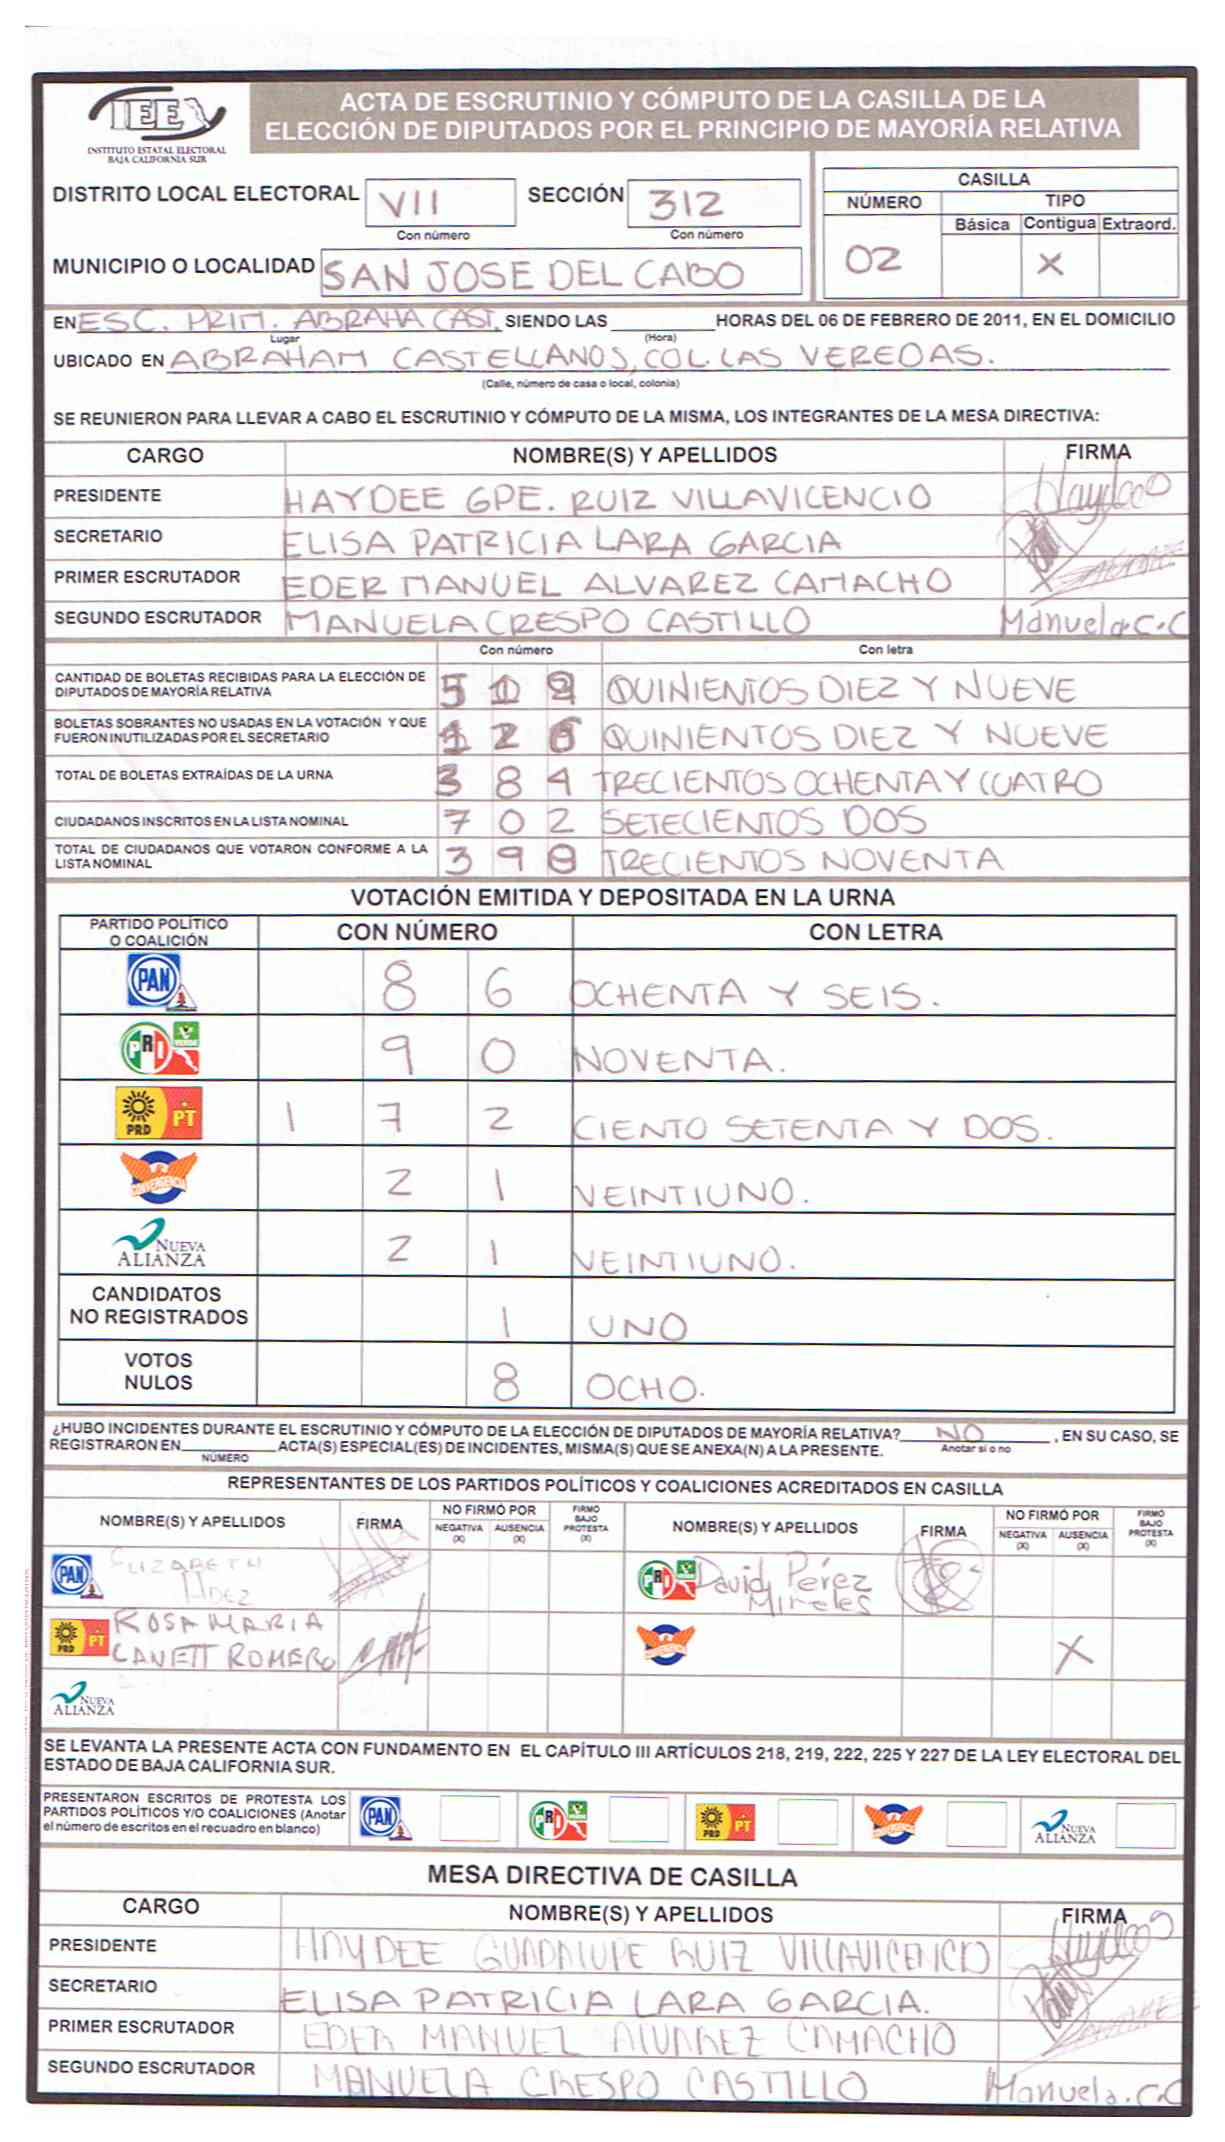 IEE
INSTITUTO ESTATAL ELECTORAL
BAJA CALIFORNIA SUR
ACTA DE ESCRUTINIO Y CÓMPUTO DE LA CASILLA DE LA
ELECCIÓN DE DIPUTADOS POR EL PRINCIPIO DE MAYORÍA RELATIVA
DISTRITO LOCAL ELECTORAL VII SECCIÓN 312
Con número Con número
MUNICIPIO O LOCALIDAD SAN JOSE DEL CABO
CASILLA
NÚMERO TIPO
Básica Contigua Extraord.
02 X
EN ESC. PRIM. ABRAHA CAST. SIENDO LAS HORAS DEL 06 DE FEBRERO DE 2011, EN EL DOMICILIO
Lugar (Hora)
UBICADO EN ABRAHAM CASTELLANOS, COL. LAS VEREDAS.
(Calle, número de casa o local, colonia)
SE REUNIERON PARA LLEVAR A CABO EL ESCRUTINIO Y CÓMPUTO DE LA MISMA, LOS INTEGRANTES DE LA MESA DIRECTIVA:
CARGO NOMBRE(S) Y APELLIDOS FIRMA
PRESIDENTE HAYDEE GPE. RUIZ VILLAVICENCIO
SECRETARIO ELISA PATRICIA LARA GARCIA
PRIMER ESCRUTADOR EDER MANUEL ALVAREZ CAMACHO
SEGUNDO ESCRUTADOR MANUELA CRESPO CASTILLO Manuela.C.C
Con número Con letra
CANTIDAD DE BOLETAS RECIBIDAS PARA LA ELECCIÓN DE
DIPUTADOS DE MAYORÍA RELATIVA 519 QUINIENTOS DIEZ Y NUEVE
BOLETAS SOBRANTES NO USADAS EN LA VOTACIÓN Y QUE
FUERON INUTILIZADAS POR EL SECRETARIO 12 QUINIENTOS DIEZ Y NUEVE
TOTAL DE BOLETAS EXTRAÍDAS DE LA URNA 384 TRECIENTOS OCHENTA Y CUATRO
CIUDADANOS INSCRITOS EN LA LISTA NOMINAL 702 SETECIENTOS DOS
TOTAL DE CIUDADANOS QUE VOTARON CONFORME A LA
LISTA NOMINAL 39 TRECIENTOS NOVENTA
VOTACIÓN EMITIDA Y DEPOSITADA EN LA URNA
PARTIDO POLÍTICO
O COALICIÓN CON NÚMERO CON LETRA
PAN 86 OCHENTA Y SEIS.
PRI VERDE 90 NOVENTA.
PRD PT 172 CIENTO SETENTA Y DOS.
CONVERGENCIA 21 VEINTIUNO.
NUEVA ALIANZA 21 VEINTIUNO.
CANDIDATOS
NO REGISTRADOS 1 UNO
VOTOS
NULOS 8 OCHO.
¿HUBO INCIDENTES DURANTE EL ESCRUTINIO Y CÓMPUTO DE LA ELECCIÓN DE DIPUTADOS DE MAYORÍA RELATIVA? NO , EN SU CASO, SE
Anotar si o no
REGISTRARON EN ACTA(S) ESPECIAL(ES) DE INCIDENTES, MISMA(S) QUE SE ANEXA(N) A LA PRESENTE.
NÚMERO
REPRESENTANTES DE LOS PARTIDOS POLÍTICOS Y COALICIONES ACREDITADOS EN CASILLA
NOMBRE(S) Y APELLIDOS FIRMA NO FIRMÓ POR NEGATIVA (X) AUSENCIA (X) FIRMÓ BAJO PROTESTA (X) NOMBRE(S) Y APELLIDOS FIRMA NO FIRMÓ POR NEGATIVA (X) AUSENCIA (X) FIRMÓ BAJO PROTESTA (X)
PAN ELIZABETH HDEZ PRI David Pérez Mireles
PRD PT ROSA MARIA CANETT ROMERO CONVERGENCIA X
NUEVA ALIANZA
SE LEVANTA LA PRESENTE ACTA CON FUNDAMENTO EN EL CAPÍTULO III ARTÍCULOS 218, 219, 222, 225 Y 227 DE LA LEY ELECTORAL DEL
ESTADO DE BAJA CALIFORNIA SUR.
PRESENTARON ESCRITOS DE PROTESTA LOS
PARTIDOS POLÍTICOS Y/O COALICIONES (Anotar
el número de escritos en el recuadro en blanco) PAN PRI PRD PT CONVERGENCIA NUEVA ALIANZA
MESA DIRECTIVA DE CASILLA
CARGO NOMBRE(S) Y APELLIDOS FIRMA
PRESIDENTE HAYDEE GUADALUPE RUIZ VILLAVICENCIO
SECRETARIO ELISA PATRICIA LARA GARCIA.
PRIMER ESCRUTADOR EDER MANUEL ALVAREZ CAMACHO
SEGUNDO ESCRUTADOR MANUELA CRESPO CASTILLO Manuela.C.C